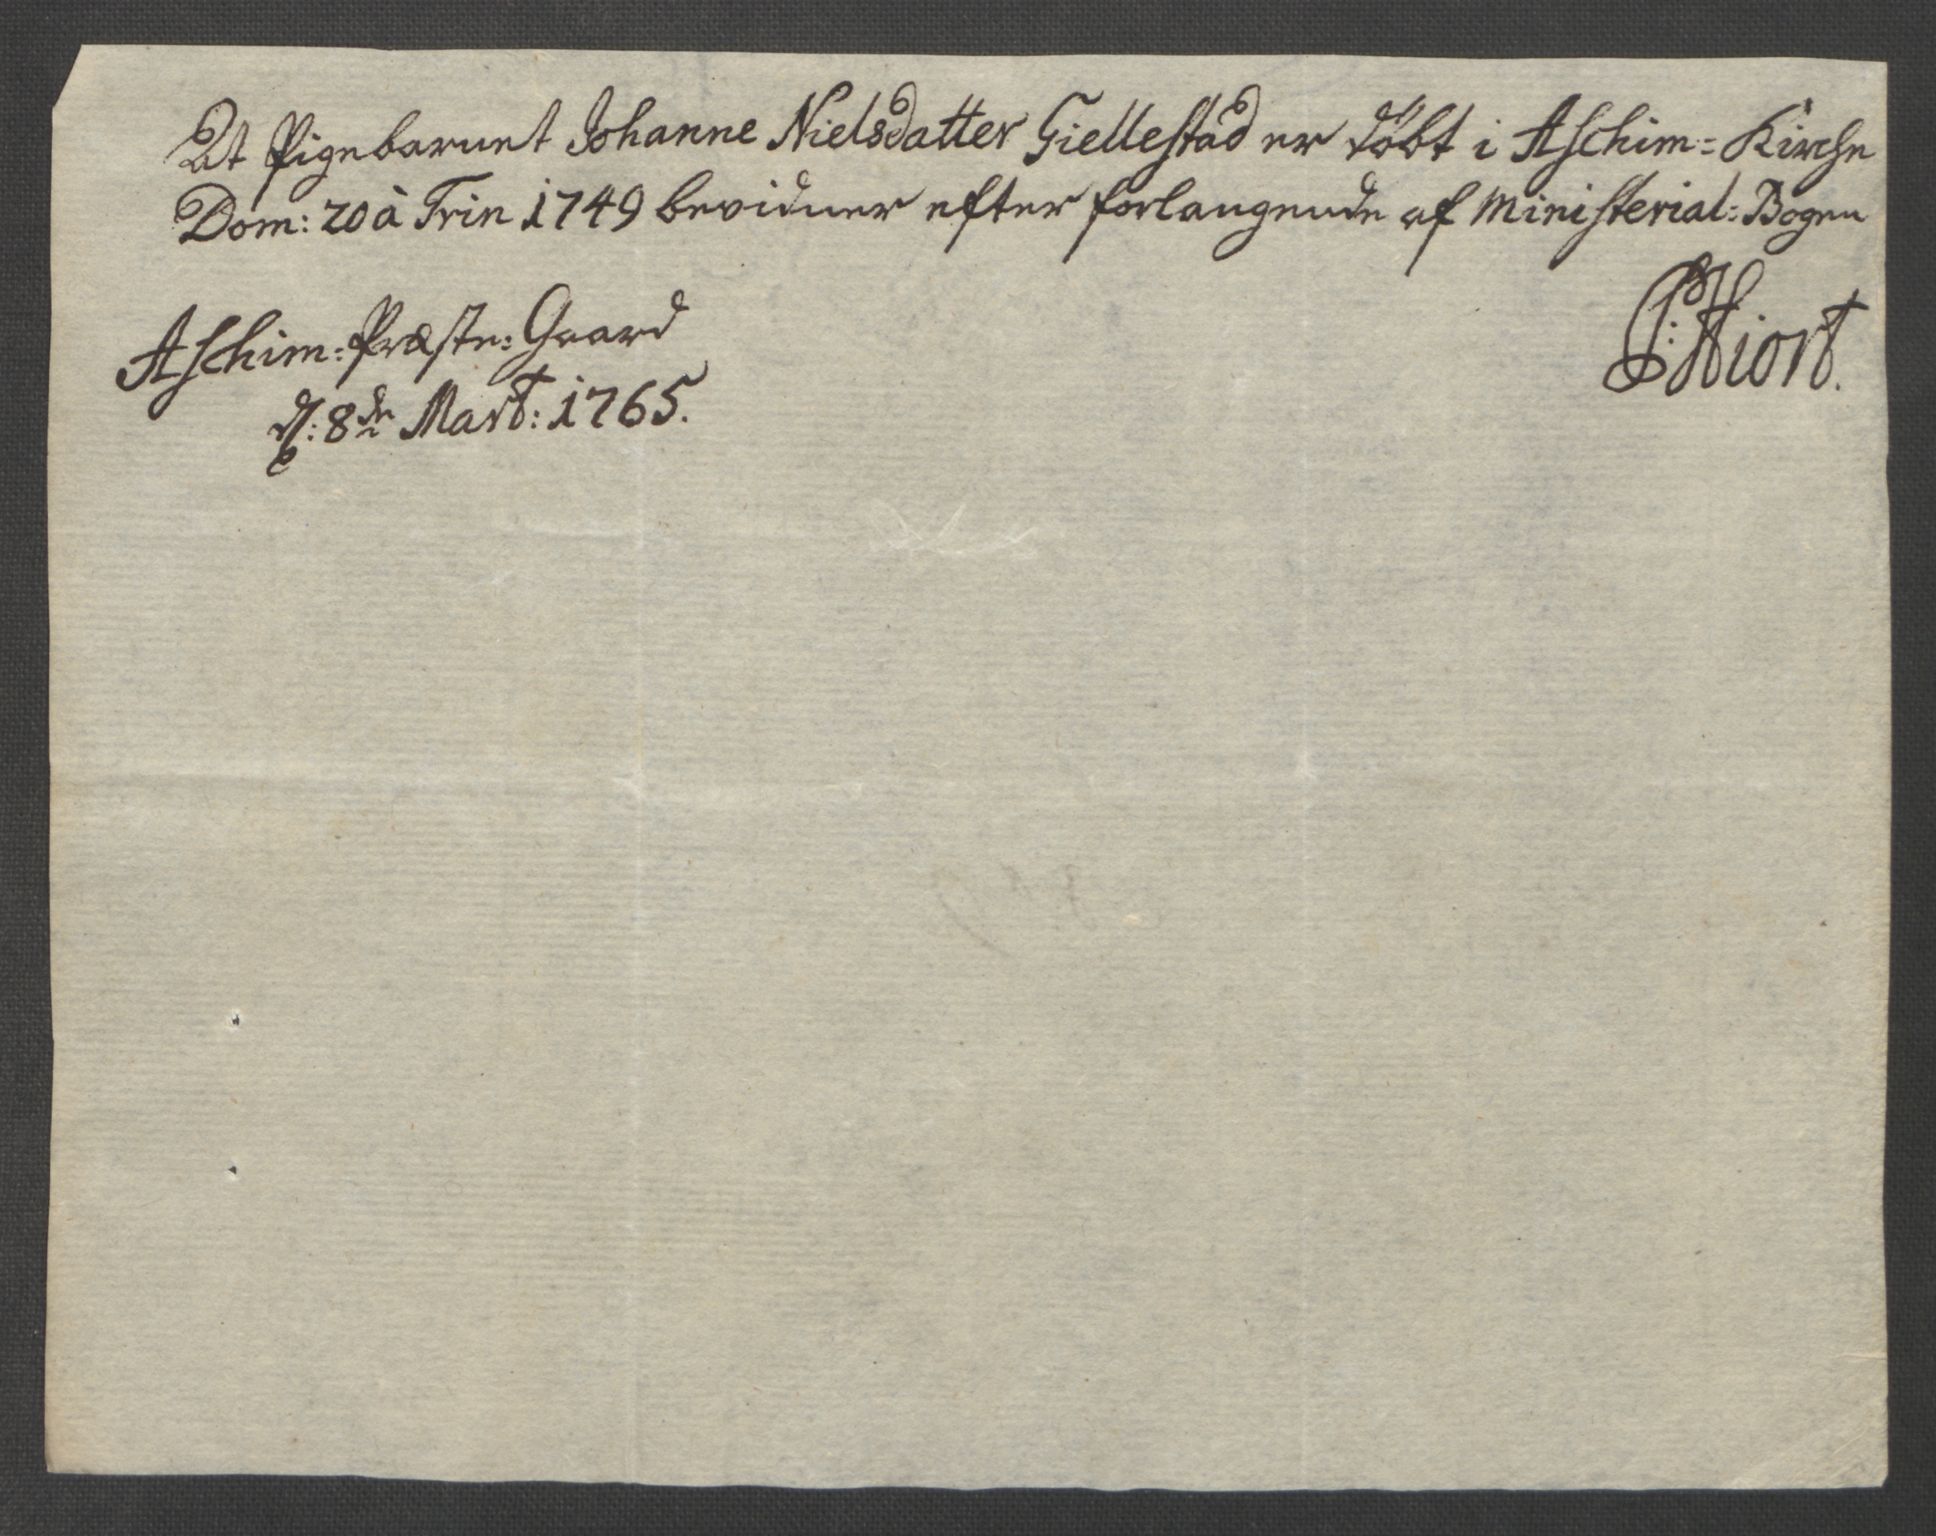 At Pigebarnet Johanne Nielsdatter Giellestad er döbt i Aschim= Kirche
Dom: 20 à Trin 1749 bevidner efter forlangende af Ministerial=Bogen
Aschim=Præste=Gaard
d: 8de Mart: 1765.
P: Hiort.